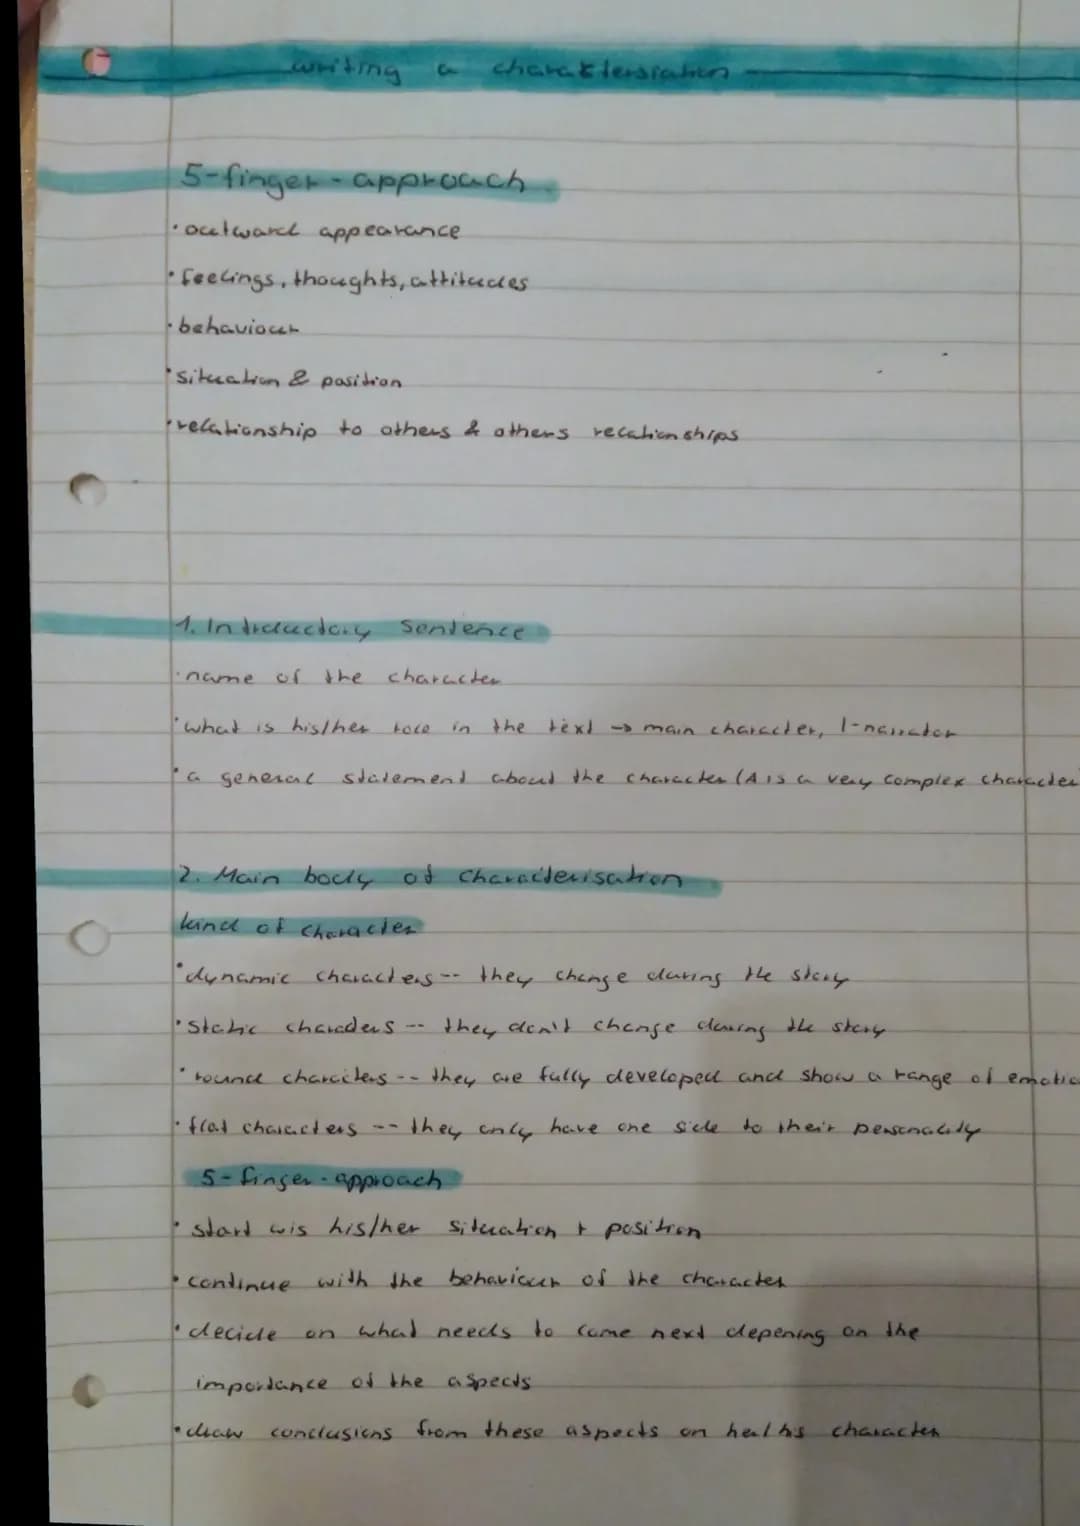 writing a charakterisiation
5-finger-approach
• outward appearance
• feelings, thoughts, attitudes
• behaviour
• situation & position
• relationship to others & others relationships
1. Introductory Sentence
• name of the character
• what is his/her role in the text → main character, I-narrator
• a general statement about the character (A is a very complex character
2. Main body of characterisation
kind of character
• dynamic characters -- they change during the story
• static characters -- they don't change during the story
• round characters -- they are fully developed and show a range of emotio
• flat characters -- they only have one side to their personality
5-finger-approach
• start wis his/her situation + position
• continue with the behaviour of the character
• decide on what needs to come next depening on the
importance of the aspects
• draw conclusions from these aspects on character